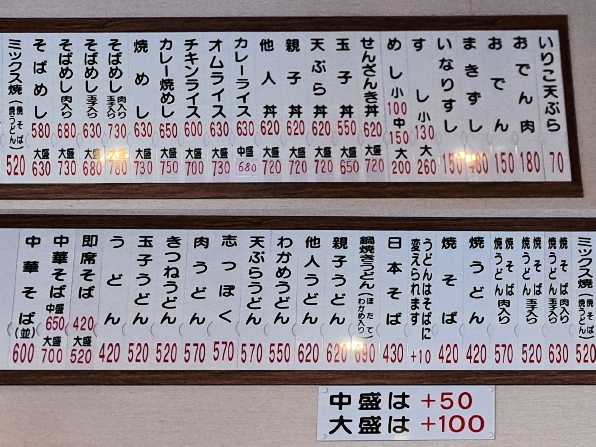 いりこ天ぷら 70
おでん肉 180
おでん 150
まきずし 480
いなりずし 150
すし 小130 大260
めし 小100 中150 大200
せんざんき丼 620 大盛720
玉子丼 550 大盛650
天ぷら丼 620 大盛720
親子丼 620 大盛720
他人丼 620 大盛720
カレーライス 630 中盛680
オムライス 630 大盛730
チキンライス 600 大盛700
カレー焼めし 650 大盛750
焼めし 630 大盛730
そばめし 肉入り 玉子入り 730 大盛780
そばめし 玉子入り 630 大盛680
そばめし 肉入り 680 大盛730
そばめし 580 大盛630
ミックス焼(焼そば 焼うどん) 520
ミックス焼(焼そば 焼うどん) 520
焼そば 焼うどん 肉入り 玉子入り 630
焼そば 焼うどん 玉子入り 520
焼そば 焼うどん 肉入り 570
焼うどん 420
焼そば 420
うどんはそばに変えられます +10
日本そば 430
鍋焼きうどん(ほたて、わかめ入り) 690
親子うどん 620
他人うどん 620
わかめうどん 550
天ぷらうどん 570
志っぽく 570
肉うどん 570
きつねうどん 520
玉子うどん 520
うどん 420
即席そば 420 大盛520
中華そば 中盛650 大盛700
中華そば(並) 600
中盛は +50
大盛は +100